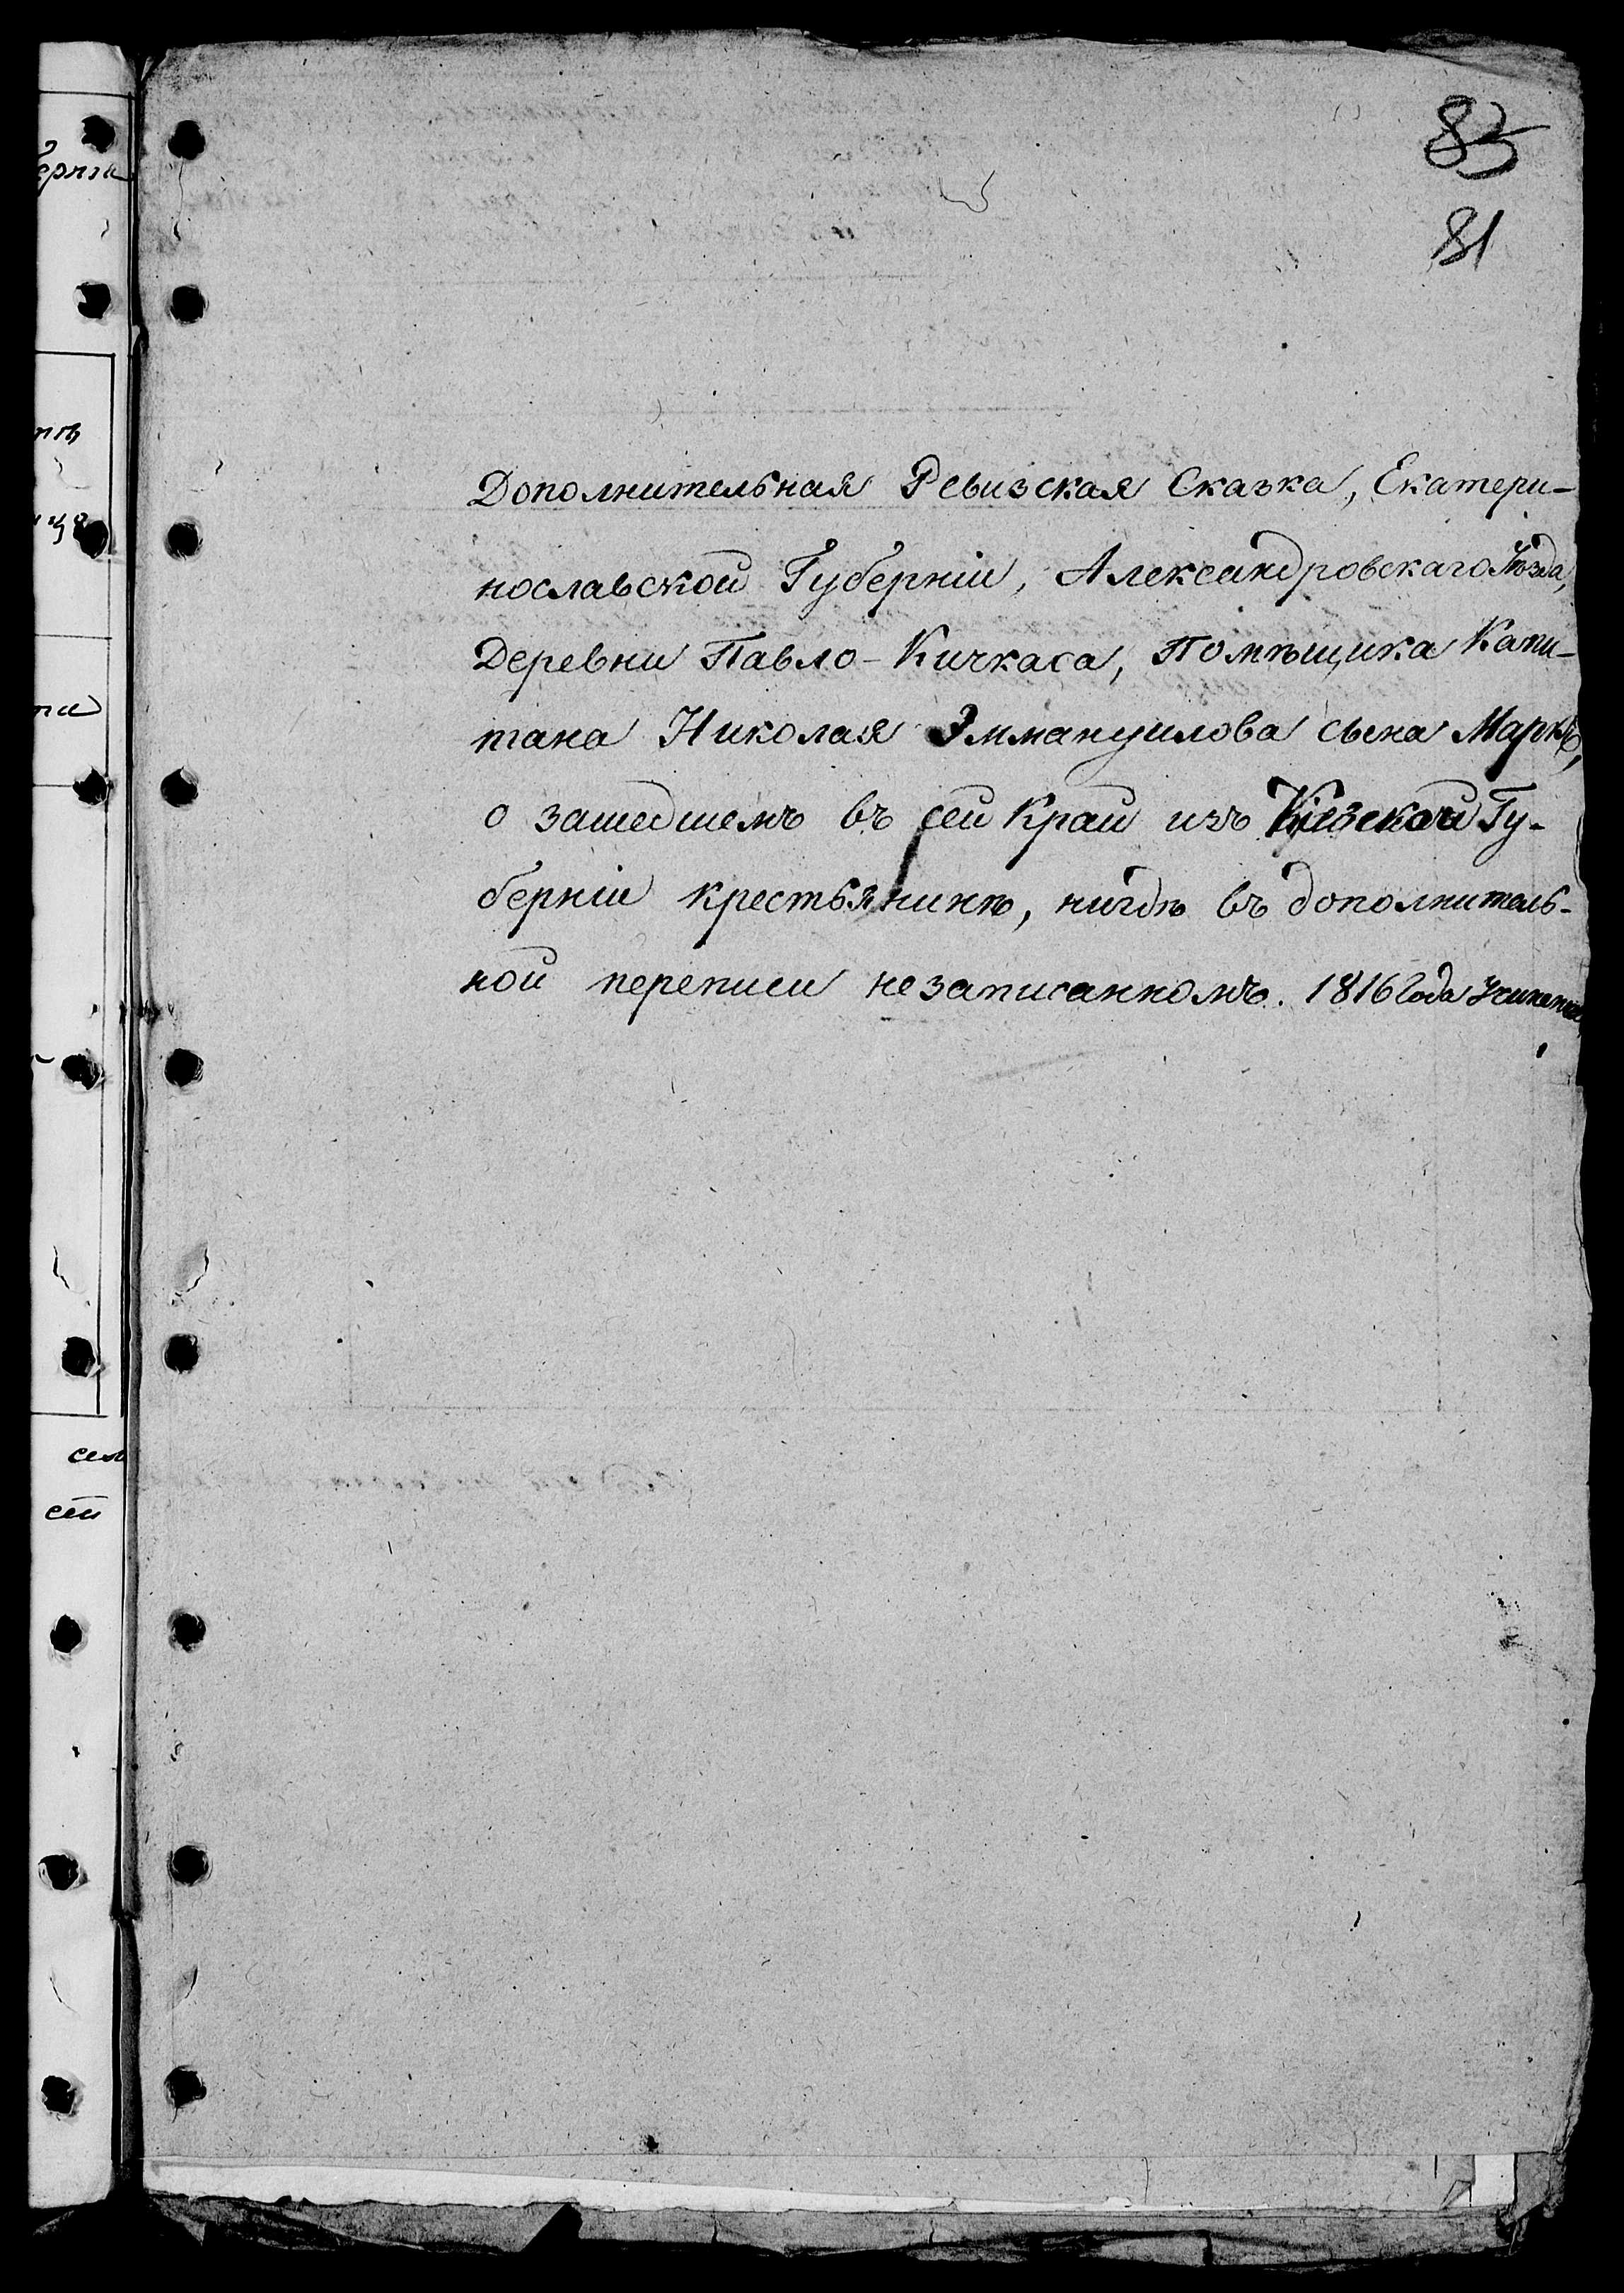 85
81
Дополнительная Ревизская Сказка, Екатери-
нославской Губерніи, Александровскаго Уѣзда,
Деревни Павло-Кичкаса, Помѣщика Капи-
тана Николая Эммануилова сына Марк
о зашедшемъ въ сей Край изъ Кіевской Гу-
берніи крестьянинѣ, нигдѣ въ дополнитель-
ной переписи незаписанномъ. 1816 Года